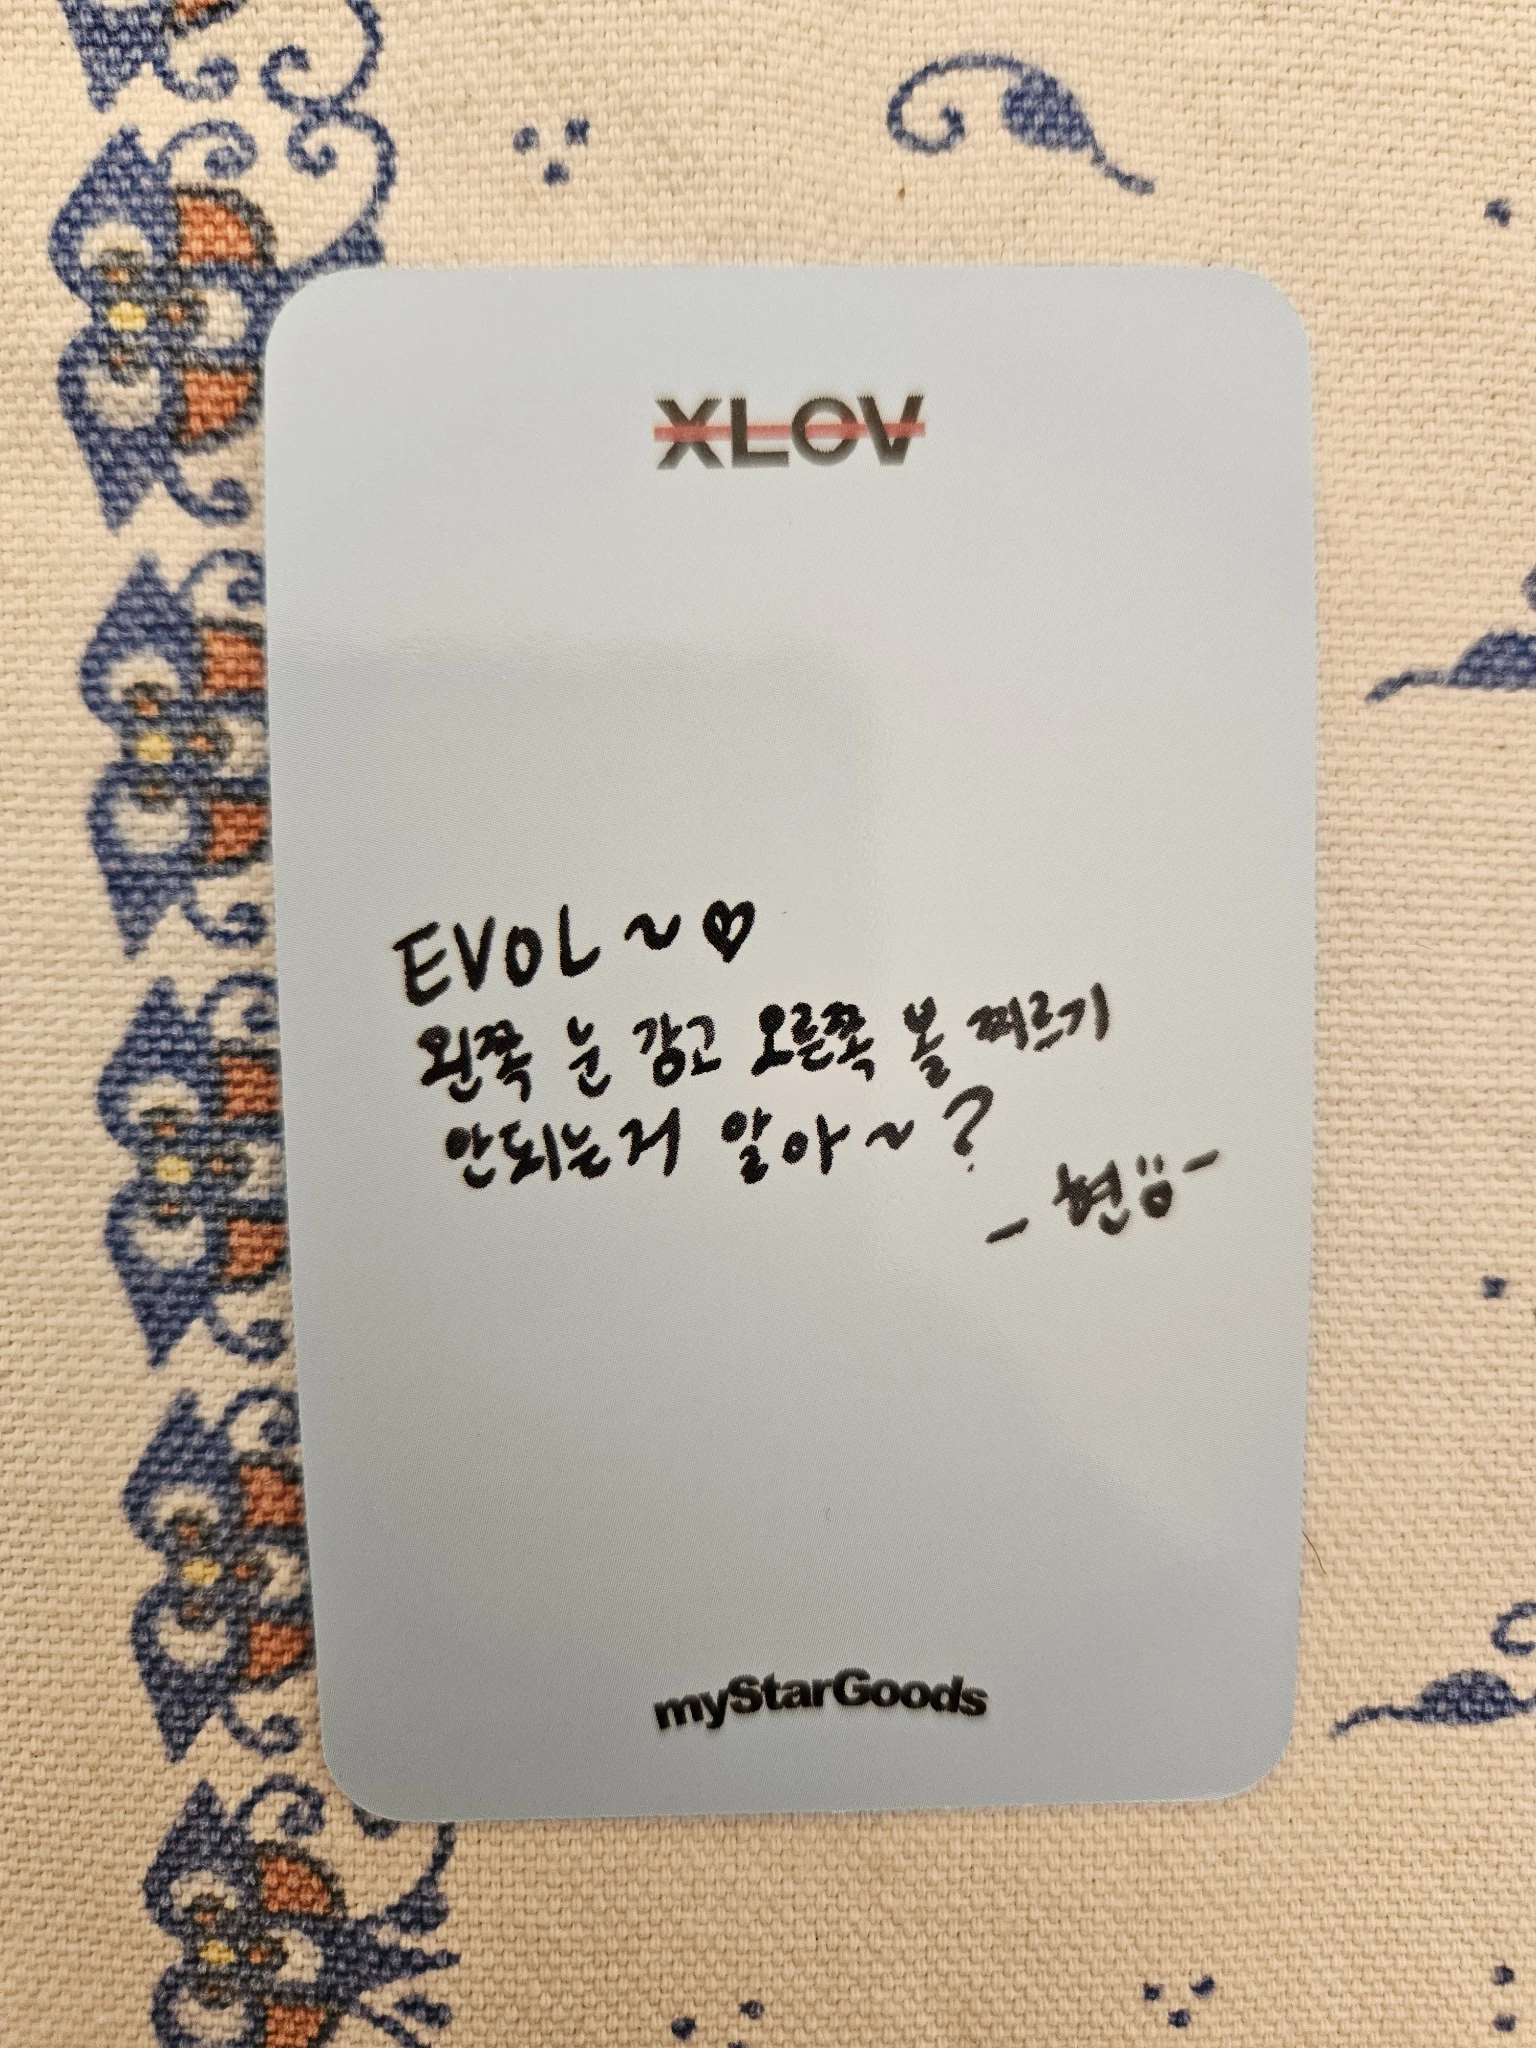 XLOV
EVOL ~ ♡
왼쪽 눈 감고 오른쪽 볼 찌르기
안되는거 알아 ~ ?
- 현 -
myStarGoods